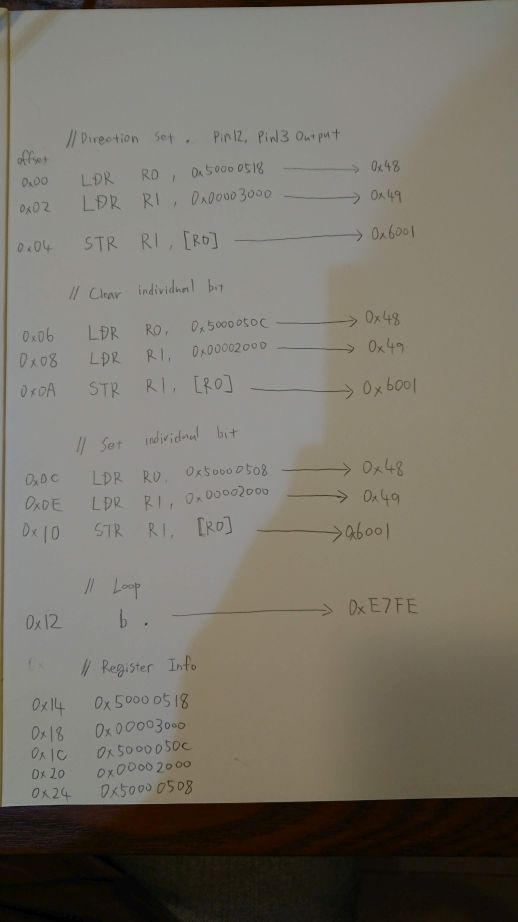 //Direction set. Pin12, Pin13 Output
offset
0x00 LDR R0, 0x50000518 → 0x48
0x02 LDR R1, 0x00003000 → 0x49
0x04 STR R1, [R0] → 0x6001
// Clear individual bit
0x06 LDR R0, 0x5000050C → 0x48
0x08 LDR R1, 0x00002000 → 0x49
0x0A STR R1, [R0] → 0x6001
// Set individual bit
0x0C LDR R0, 0x50000508 → 0x48
0x0E LDR R1, 0x00002000 → 0x49
0x10 STR R1, [R0] → 0x6001
// Loop
0x12 b . → 0xE7FE
// Register Info
0x14 0x50000518
0x18 0x00003000
0x1C 0x5000050C
0x20 0x00002000
0x24 0x50000508